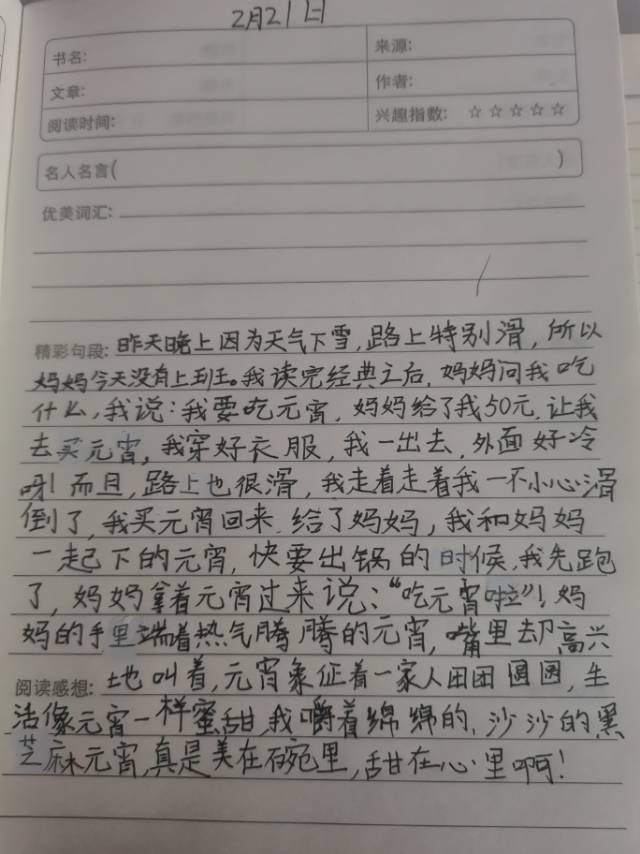 2月21日
书名:
来源:
文章:
作者:
阅读时间:
兴趣指数: ☆☆☆☆☆
名人名言( )
优美词汇:
精彩句段: 昨天晚上因为天气下雪,路上特别滑,所以
妈妈今天没有上班。我读完经典之后,妈妈问我吃
什么,我说:我要吃元宵,妈妈给了我50元,让我
去买元宵,我穿好衣服,我一出去,外面好冷
呀!而且,路上也很滑,我走着走着我一不小心滑
倒了,我买元宵回来,给了妈妈,我和妈妈
一起下的元宵,快要出锅的时候,我先跑
了,妈妈拿着元宵过来说:“吃元宵啦”!妈
妈的手里端着热气腾腾的元宵,嘴里却高兴
阅读感想: 地叫着,元宵象征着一家人团团圆圆,生
活像元宵一样蜜甜,我嚼着绵绵的,沙沙的黑
芝麻元宵,真是美在碗里,甜在心里啊!